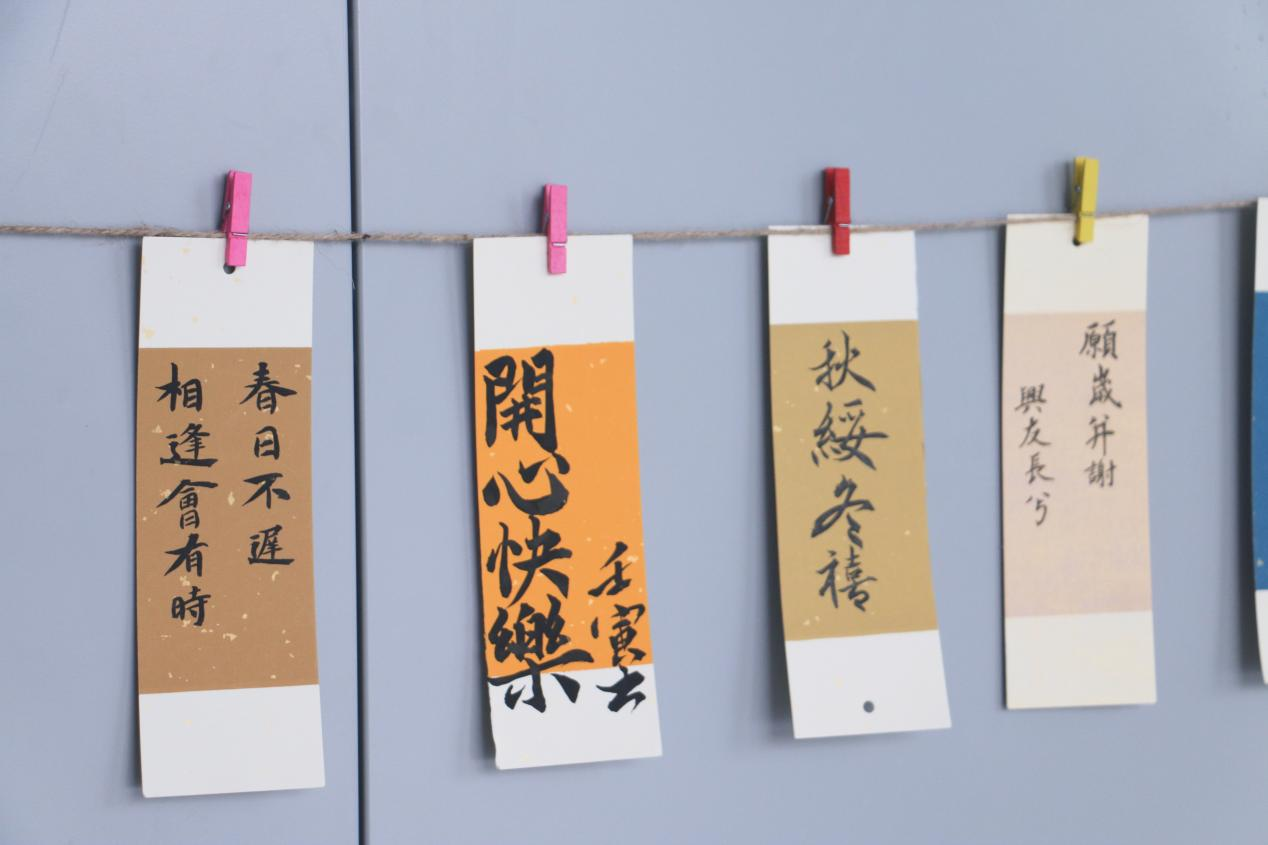 春日不遲
相逢會有時
開心快樂
壬寅
秋綏冬禧
願歲并謝
與友長兮